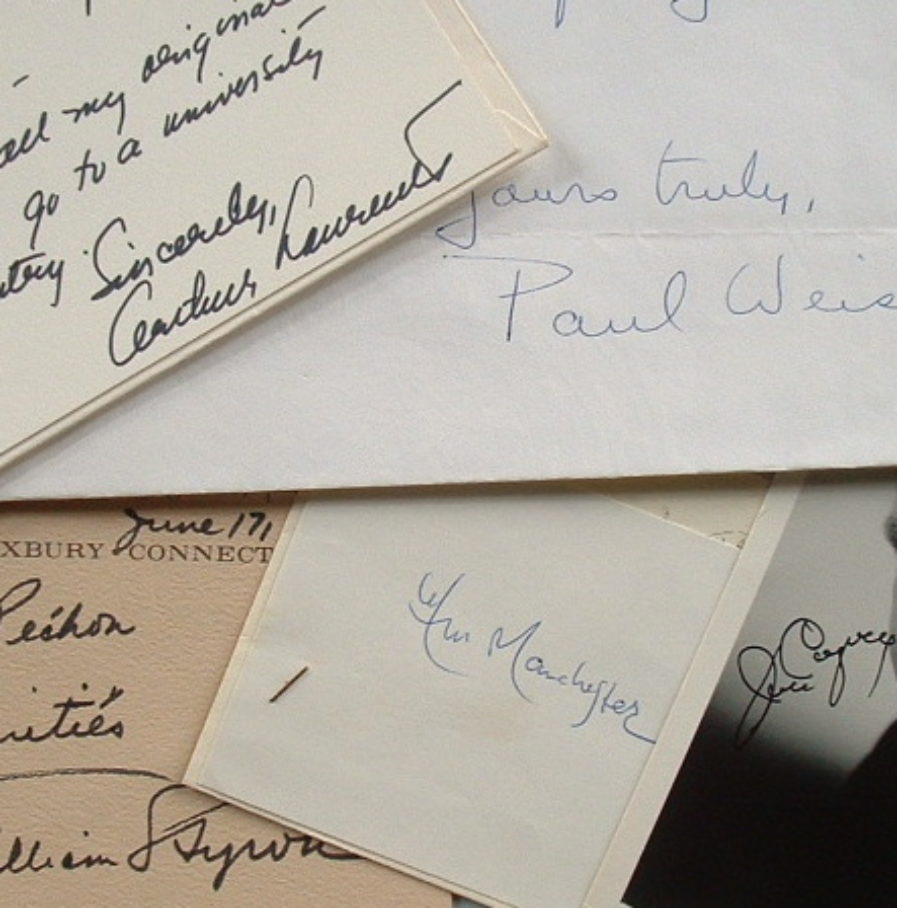 all my original
go to a university
Sincerely,
Arthur Laurents
yours truly,
Paul Weis
June 17,
XBURY CONNECT
Pechon
rities
illiam Styron
Wm Manchester